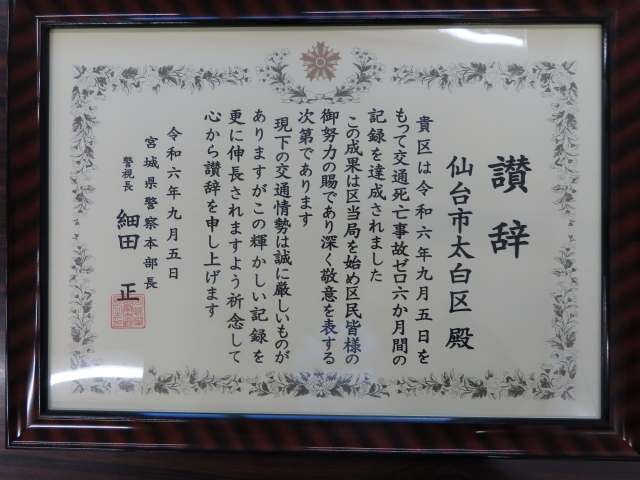 讃辞
仙台市太白区殿
貴区は令和六年九月五日を
もって交通死亡事故ゼロ六か月間の
記録を達成されました
この成果は区当局を始め区民皆様の
御努力の賜であり深く敬意を表する
次第であります
現下の交通情勢は誠に厳しいものが
ありますがこの輝かしい記録を
更に伸長されますよう祈念して
心から讃辞を申し上げます
令和六年九月五日
宮城県警察本部長
警視長 細田正